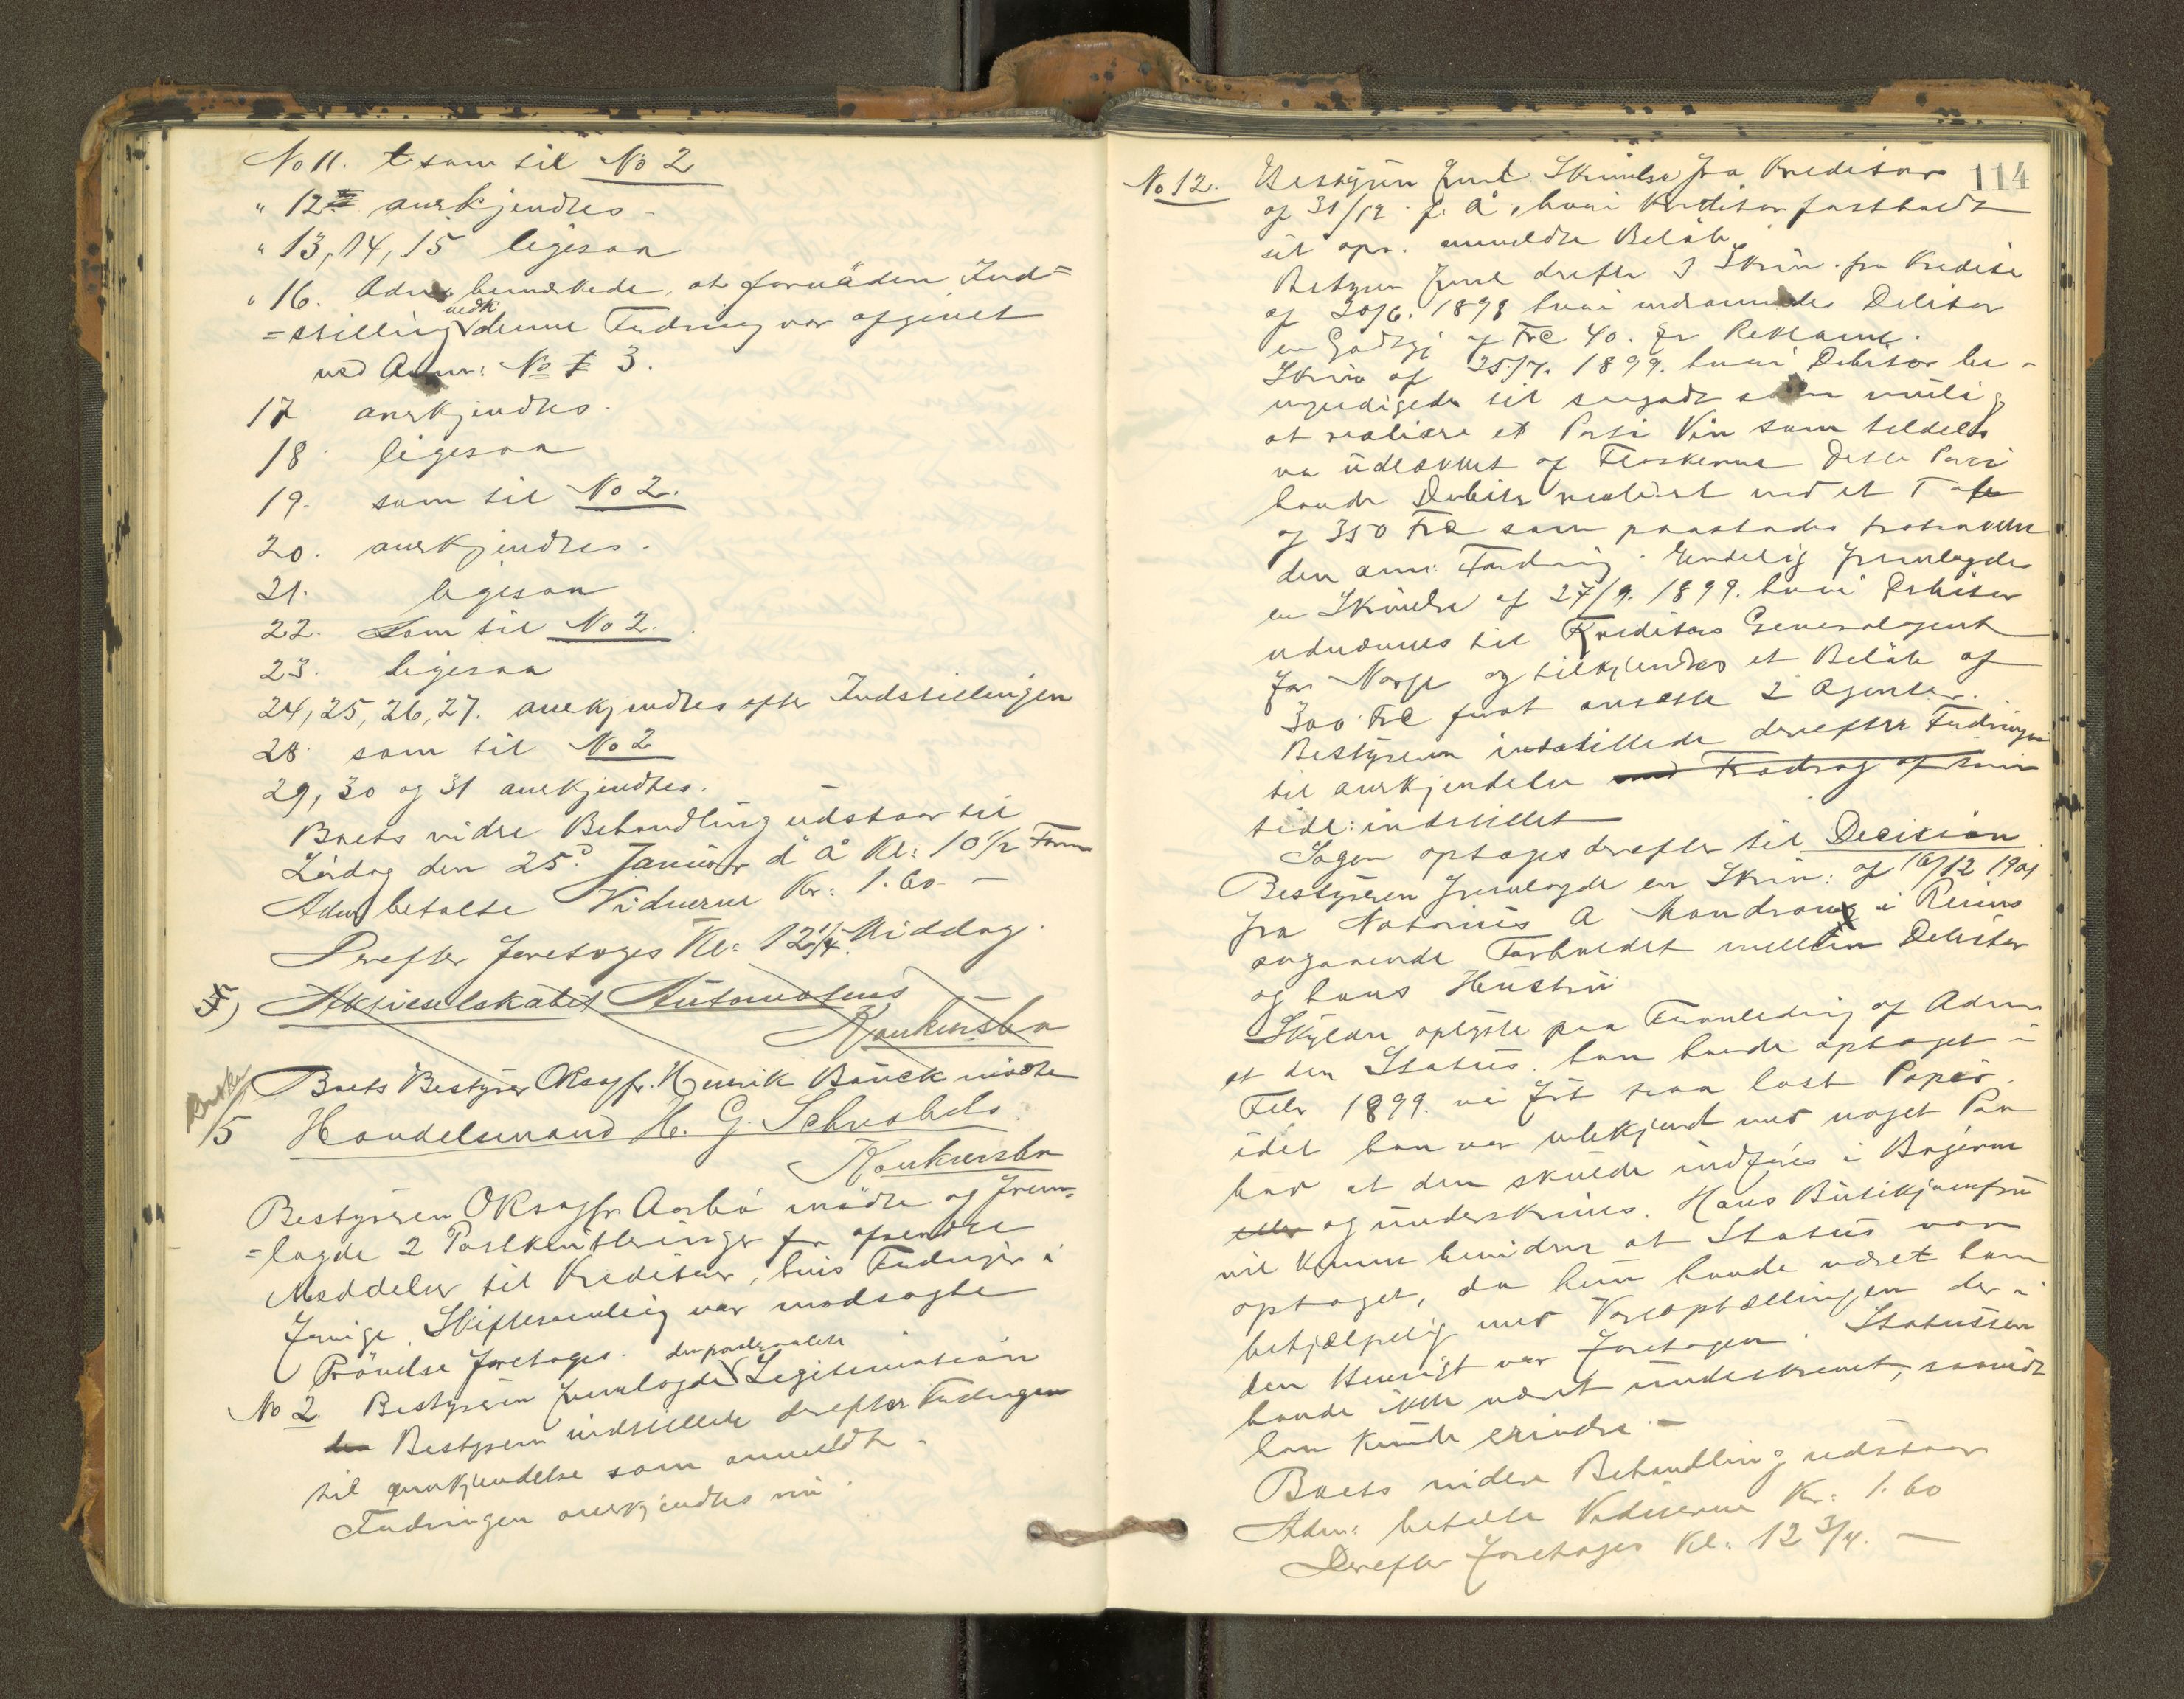 No 11. som til No 2
" 12 anerkjendtes
" 13, 14, 15 ligesaa
" 16. Adm bemærkede, at fornöden Ind=
=stilling vedk denne Fordring var afgivet
ved Anm: No 3.
17 anerkjendtes.
18 ligesaa
19. som til No 2.
20. anerkjendtes.
21. ligesaa
22. Som til No 2.
23. ligesaa
24, 25, 26, 27. anerkjendtes efter Indstillingen
28 som til No 2
29, 30 og 31 anerkjendtes.
Boets videre Behandling udstaar til
Lördag den 25d Januar d å Kl: 10 1/2 Form
Adm betalte Vidnerne Kr: 1.60 -
Derefter foretoges Kl: 12 1/4 Middag.
Aktieselskabet Automatens
Konkursbo
Boets Bestyrer OKsagfr. Henrik Bönck mödte
5 Handelsmand H. G. Schrabels
Konkursbo
Bestyreren OKsagfr. Aarbö mödte og frem-
=lagde 2 Postkvitteringer for afsendte
Meddelser til Kreditorer, hvis Fordringer i
forrige Skiftesamling var modsagte
Prövelse foretoges.
No 2. Bestyreren fremlagde den paaberaabte Legitimation
Bestyreren indstillede derefter Fordringen
til anerkjendelse som anmeldt.
Fordringen anerkjendtes nu.
114
No 12. Bestyreren freml. Skrivelse fra Kreditor
af 31/12 f. å, hvori Kreditor fastholdt
sit opr. anmeldte Belöb.
Bestyren freml derefter 3 Skriv. fra Kreditor
af 20/6. 1898 hvori indrömmedes Debitor
en Godtgj af Frc 40. for Reklame.
Skriv af 25/7. 1899. hvori Debitor be-
myndigedes til saa godt som mulig
at realisere et Parti Vin som tildels
var udlækket af Flaskerne Dette Parti
havde Debitor realiseret med et Tab
af 350 Frc som paastodes fratrukket
den anm: Fordring. Endelig fremlagdes
en Skrivelse af 27/9. 1899. hvori Debitor
udnævnes til Kreditors Generalagent
for Norge og tilkjendtes et Belöb af
300 Frc for at ansætte 2 Agenter.
Bestyreren indstillede derefter Fordringen
til anerkjendelse med Fradrag af som
tidl: indstillet
Sagen optages derefter til Decision
Bestyreren fremlagde en Skriv: af 16/12 1901
fra Notarius A Mandrou i Reims
angaaende Forholdet mellem Debitor
og hans Hustru
Skyldn oplyste paa Foranledning af Adm
at den Status han havde optaget i
Febr 1899. var fört paa löst Papir.
idet han var ubekjendt med noget Paa
bud at den skulde indföres i Bögerne
og underskrives. Hans Butikjomfru
vil kunne bevidne at Status var
optaget, da hun havde været ham
behjælpelig med Vareoptællingen der i
den Hensigt var foretagen. Statussen
havde ikke været underskrevet, saavidt
han kunde erindre. -
Boets videre Behandling udstaar
Adm: betalte Vidnerne Kr: 1.60
Derefter foretoges Kl: 12 3/4. -